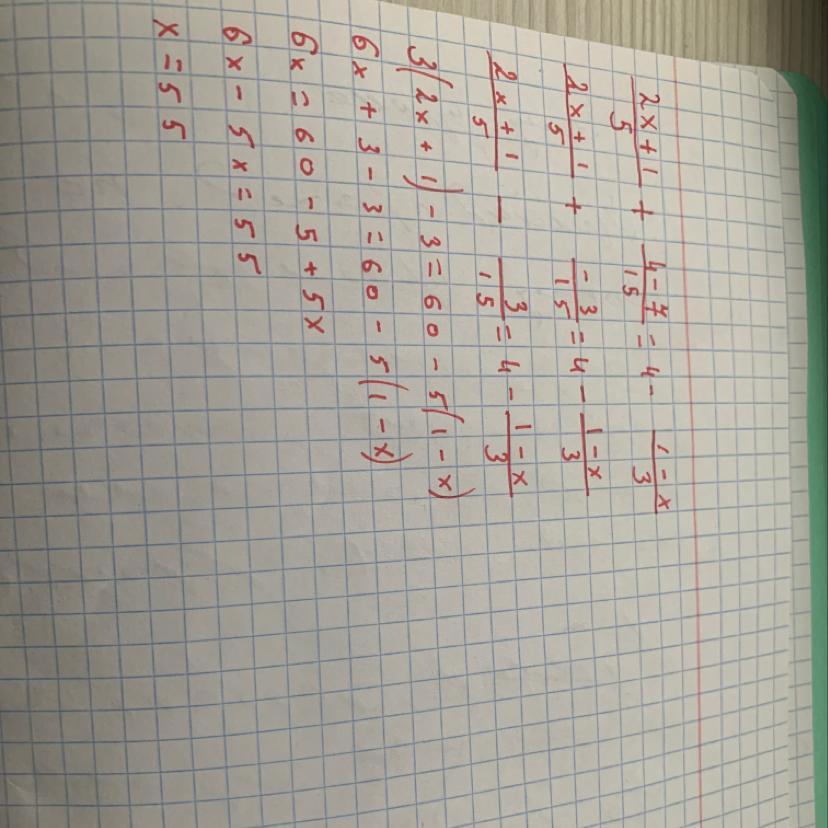 (2x+1)/5 + (4-7)/15 = 4 - (1-x)/3
(2x+1)/5 + (-3)/15 = 4 - (1-x)/3
(2x+1)/5 - 3/15 = 4 - (1-x)/3
3(2x+1)-3=60-5(1-x)
6x+3-3=60-5(1-x)
6x=60-5+5x
6x-5x=55
x=55